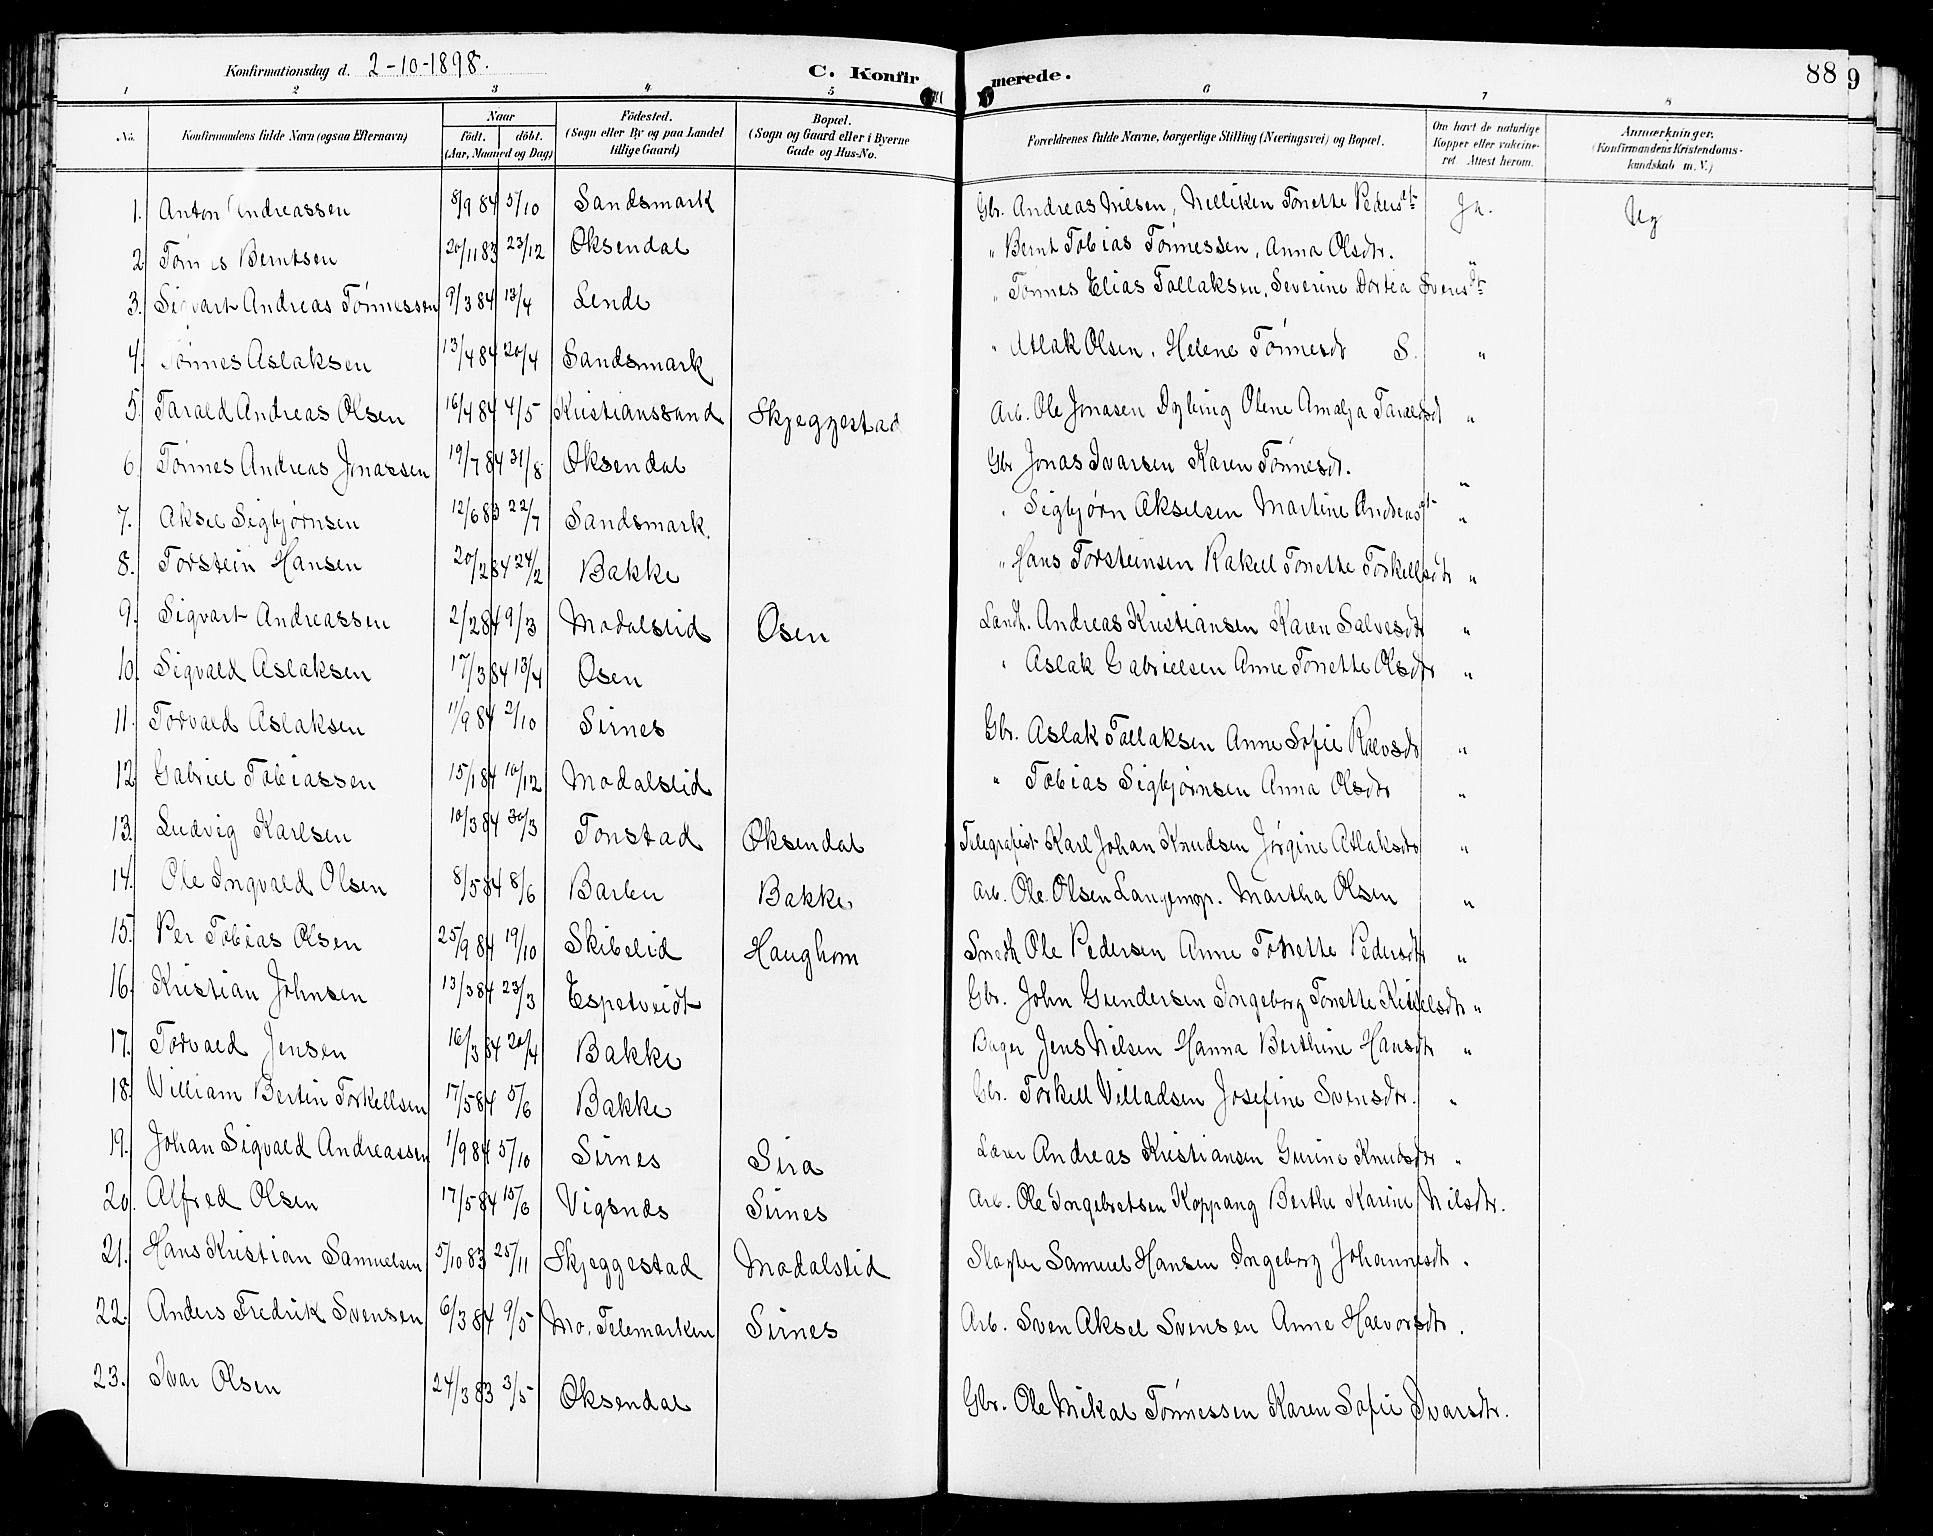 Konfirmationsdag d. 2-10-1898. C. Konfirmerede. 88 9
1 2 3 4 5 6 7 8
No. Konfirmandens fulde Navn (ogsaa Efternavn) Naar födt. döbt. (Aar, Maaned og Dag) Födested. (Sogn eller By og paa Landet tillige Gaard) Bopæl. (Sogn og Gaard eller i Byerne Gade og Hus-No. Forældrenes fulde Navne, borgerlige Stilling (Næringsvei) og Bopæl. Om havt de naturlige Kopper eller vaccineret. Attest herom. Anmærkninger. (Konfirmandens Kristendomskundskab m. V.)
1. Anton Andreassen 8/9 84 5/10 Sandsmark Gbr. Andreas Nilsen, Nilliken Tonette Pedersdtr Ja. Ug
2 Tønnes Berntsen 20/11 83 23/12 Øksendal " Bernt Tobias Tønnessen, Anna Olsdtr. "
3. Sigvart Andreas Tønnessen 9/3 84 13/4 Lende " Tønnes Elias Tollaksen, Severine Dortea Svensdtr
4. Tønnes Aslaksen 13/4 84 20/4 Sandsmark " Atlak Olsen, Helene Tønnesdr S. "
5. Tarald Andreas Olsen 16/4 84 4/5 Kristianssand Skjeggestad Arb. Ole Jonasen Dybing Olene Amalja Taraldsdt "
6. Tønnes Andreas Jonassen 19/7 84 31/8 Øksendal Gbr Jonas Ivarsen Karen Tønnesdr. "
7. Aksel Sigbjørnsen 12/6 83 22/7 Sandsmark. " Sigbjørn Akselsen Martine Andreasdt "
8. Torstein Hansen 20/2 84 24/2 Bakke " Hans Torsteinsen Rakel Tonette Torkellsdtr "
9. Sigvart Andreassen 2/2 84 9/3 Modalslid Osen Landh. Andreas Kristiansen Karen Salvesdtr "
10. Sigvald Aslaksen 17/3 84 13/4 Osen " Aslak Gabrielsen Anne Tonette Olsdtr "
11. Torvald Aslaksen 11/9 84 2/10 Sirnes Gbr. Aslak Tollaksen Anne Sofie Ralvsdtr "
12 Gabriel Tobiassen 15/1 84 10/12 Modalslid " Tobias Sigbjørnsen Anna Olsdtr "
13. Ludvig Karlsen 10/3 84 30/3 Tonstad Øksendal Telegrafist Karl Johan Knudsen Jørgine Atlaksdtr "
14. Ole Ingvald Olsen 8/5 84 8/6 Barlen Bakke Arb. Ole Olsen Martha Olsen "
15. Per Tobias Olsen 25/9 84 19/10 Skibelid Haughom Smedh Ole Pedersen Anne Tonette Pedersdtr "
16. Kristian Johnsen 13/3 84 23/3 Espetveidt Gbr. John Gundersen Ingeborg Tonette Ketilsdtr "
17. Torvald Jensen 16/3 84 20/4 Bakke Bager Jens Nilsen Hanna Berthine Hansdtr "
18. Villiam Bertin Torkellsen 17/5 84 5/6 Bakke Gbr. Torkell Villadsen Josefine Svensdtr. "
19. Johan Sigvald Andreassen 1/9 84 5/10 Sirnes Sira Lærer Andreas Kristiansen Gurine Knudsdtr "
20. Alfred Olsen 17/5 84 15/6 Vigsnæs Sirnes Arb. Ole Ingebretsen Koppang Berthe Karine Nilsdtr.
21. Hans Kristian Samuelsen 5/10 83 25/11 Skjeggestad Modalslid Slagter Samuel Hansen Ingeborg Johannesdt.
22. Anders Fredrik Svensen 6/3 84 9/5 Mo. Telemarken Sirnes Arb. Sven Aksel Svensen Anne Halvorsdtr.
23. Ivar Olsen 24/3 83 3/5 Øksendal Gbr. Ole Mikal Tønnessen Karen Sofie Ivarsdtr.